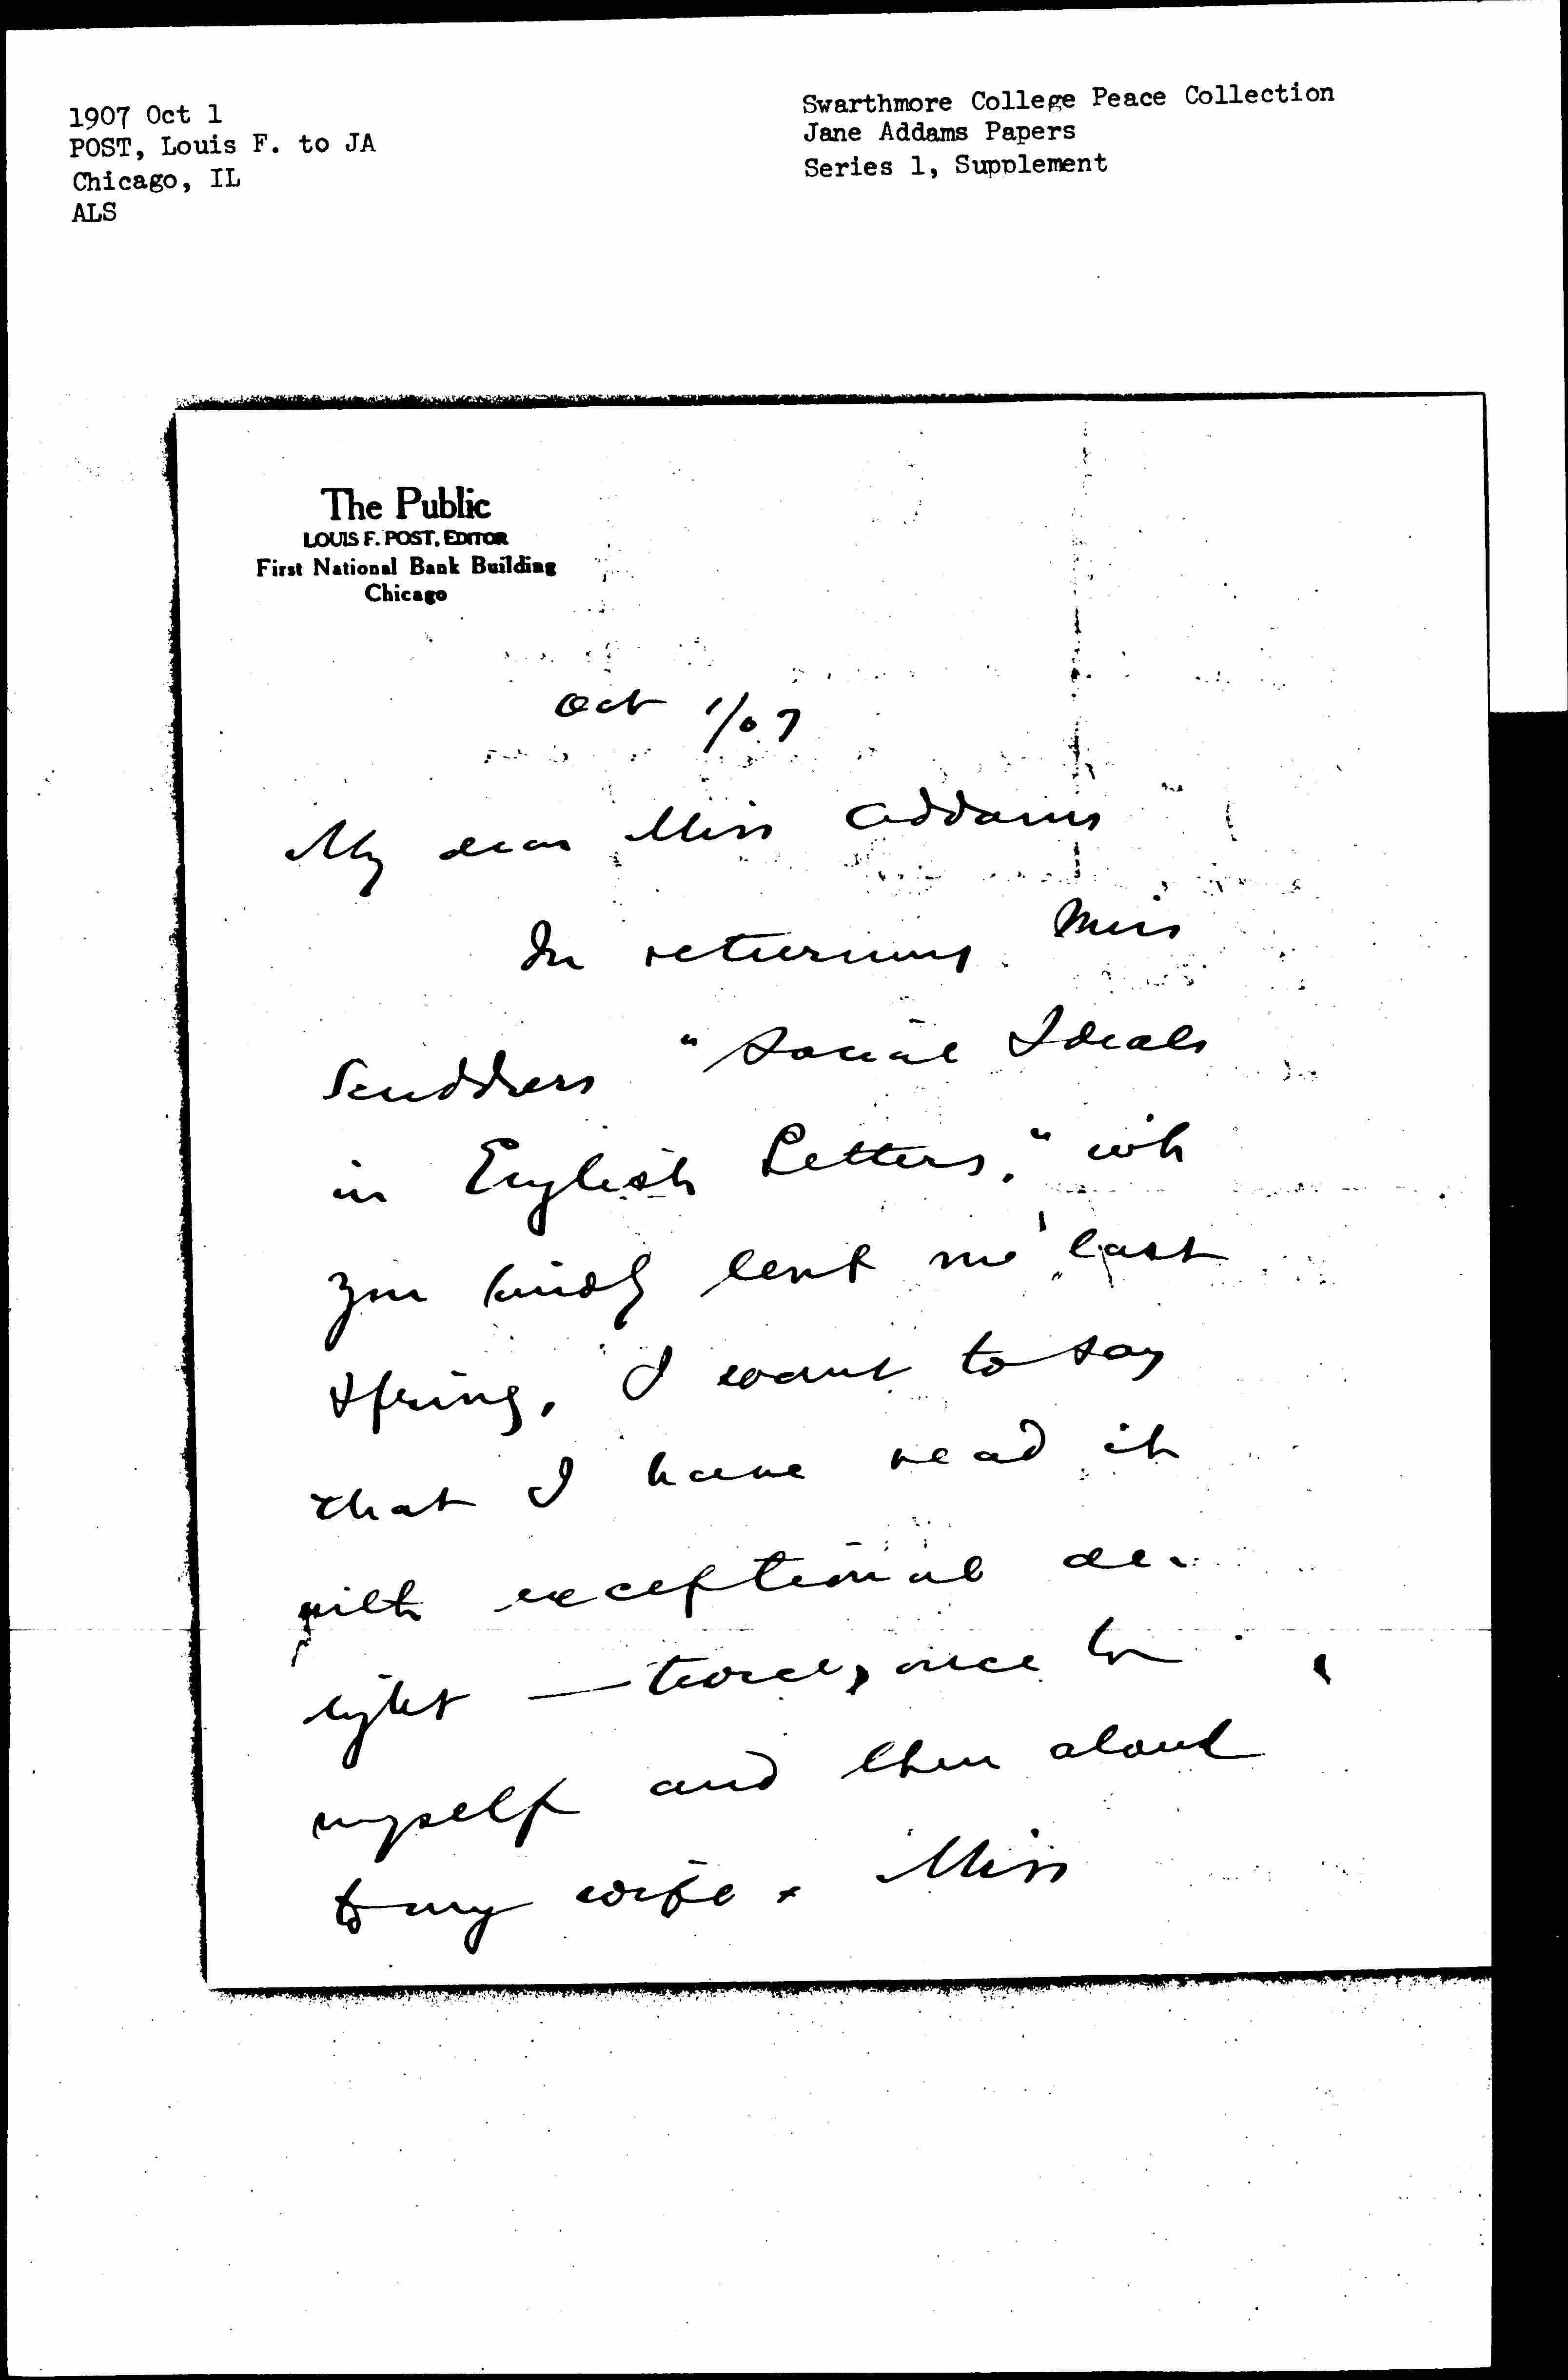 1907 Oct 1
POST, Louis F. to JA
Chicago, IL
ALS
Swarthmore College Peace Collection
Jane Addams Papers
Series 1, Supplement
The Public
LOUIS F. POST, EDITOR
First National Bank Building
Chicago
Oct 1/07
My dear Miss Addams
In returning Miss
Scudders "Social Ideals
in English Letters," wh
you kindly lent me last
Spring, I want to say
that I have read it
with exceptional de-
light — twice, once to
myself and then aloud
to my wife & Miss